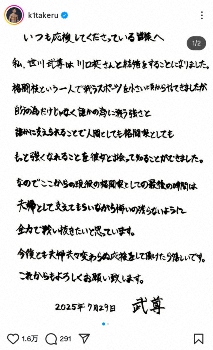 k1takeru
1/2
いつも応援してくださっている皆様へ
私、世川武尊は川口葵さんと結婚をすることになりました。
格闘技という一人で戦うスポーツを小さい頃からしてきましたが
自分の為だけじゃなく誰かの為に戦う強さと
誰かに支えられることで人間としても格闘家としても
もっと強くなれることを彼女と出会って知ることができました。
なのでここからの現役の格闘家としての最後の時間は
夫婦として支えてもらいながら悔いの残らないように
全力で戦い抜きたいと思っています。
今後とも夫婦共々変わらぬ応援をして頂けたら嬉しいです。
これからもよろしくお願い致します。
2025年7月29日 武尊
1.6万
291